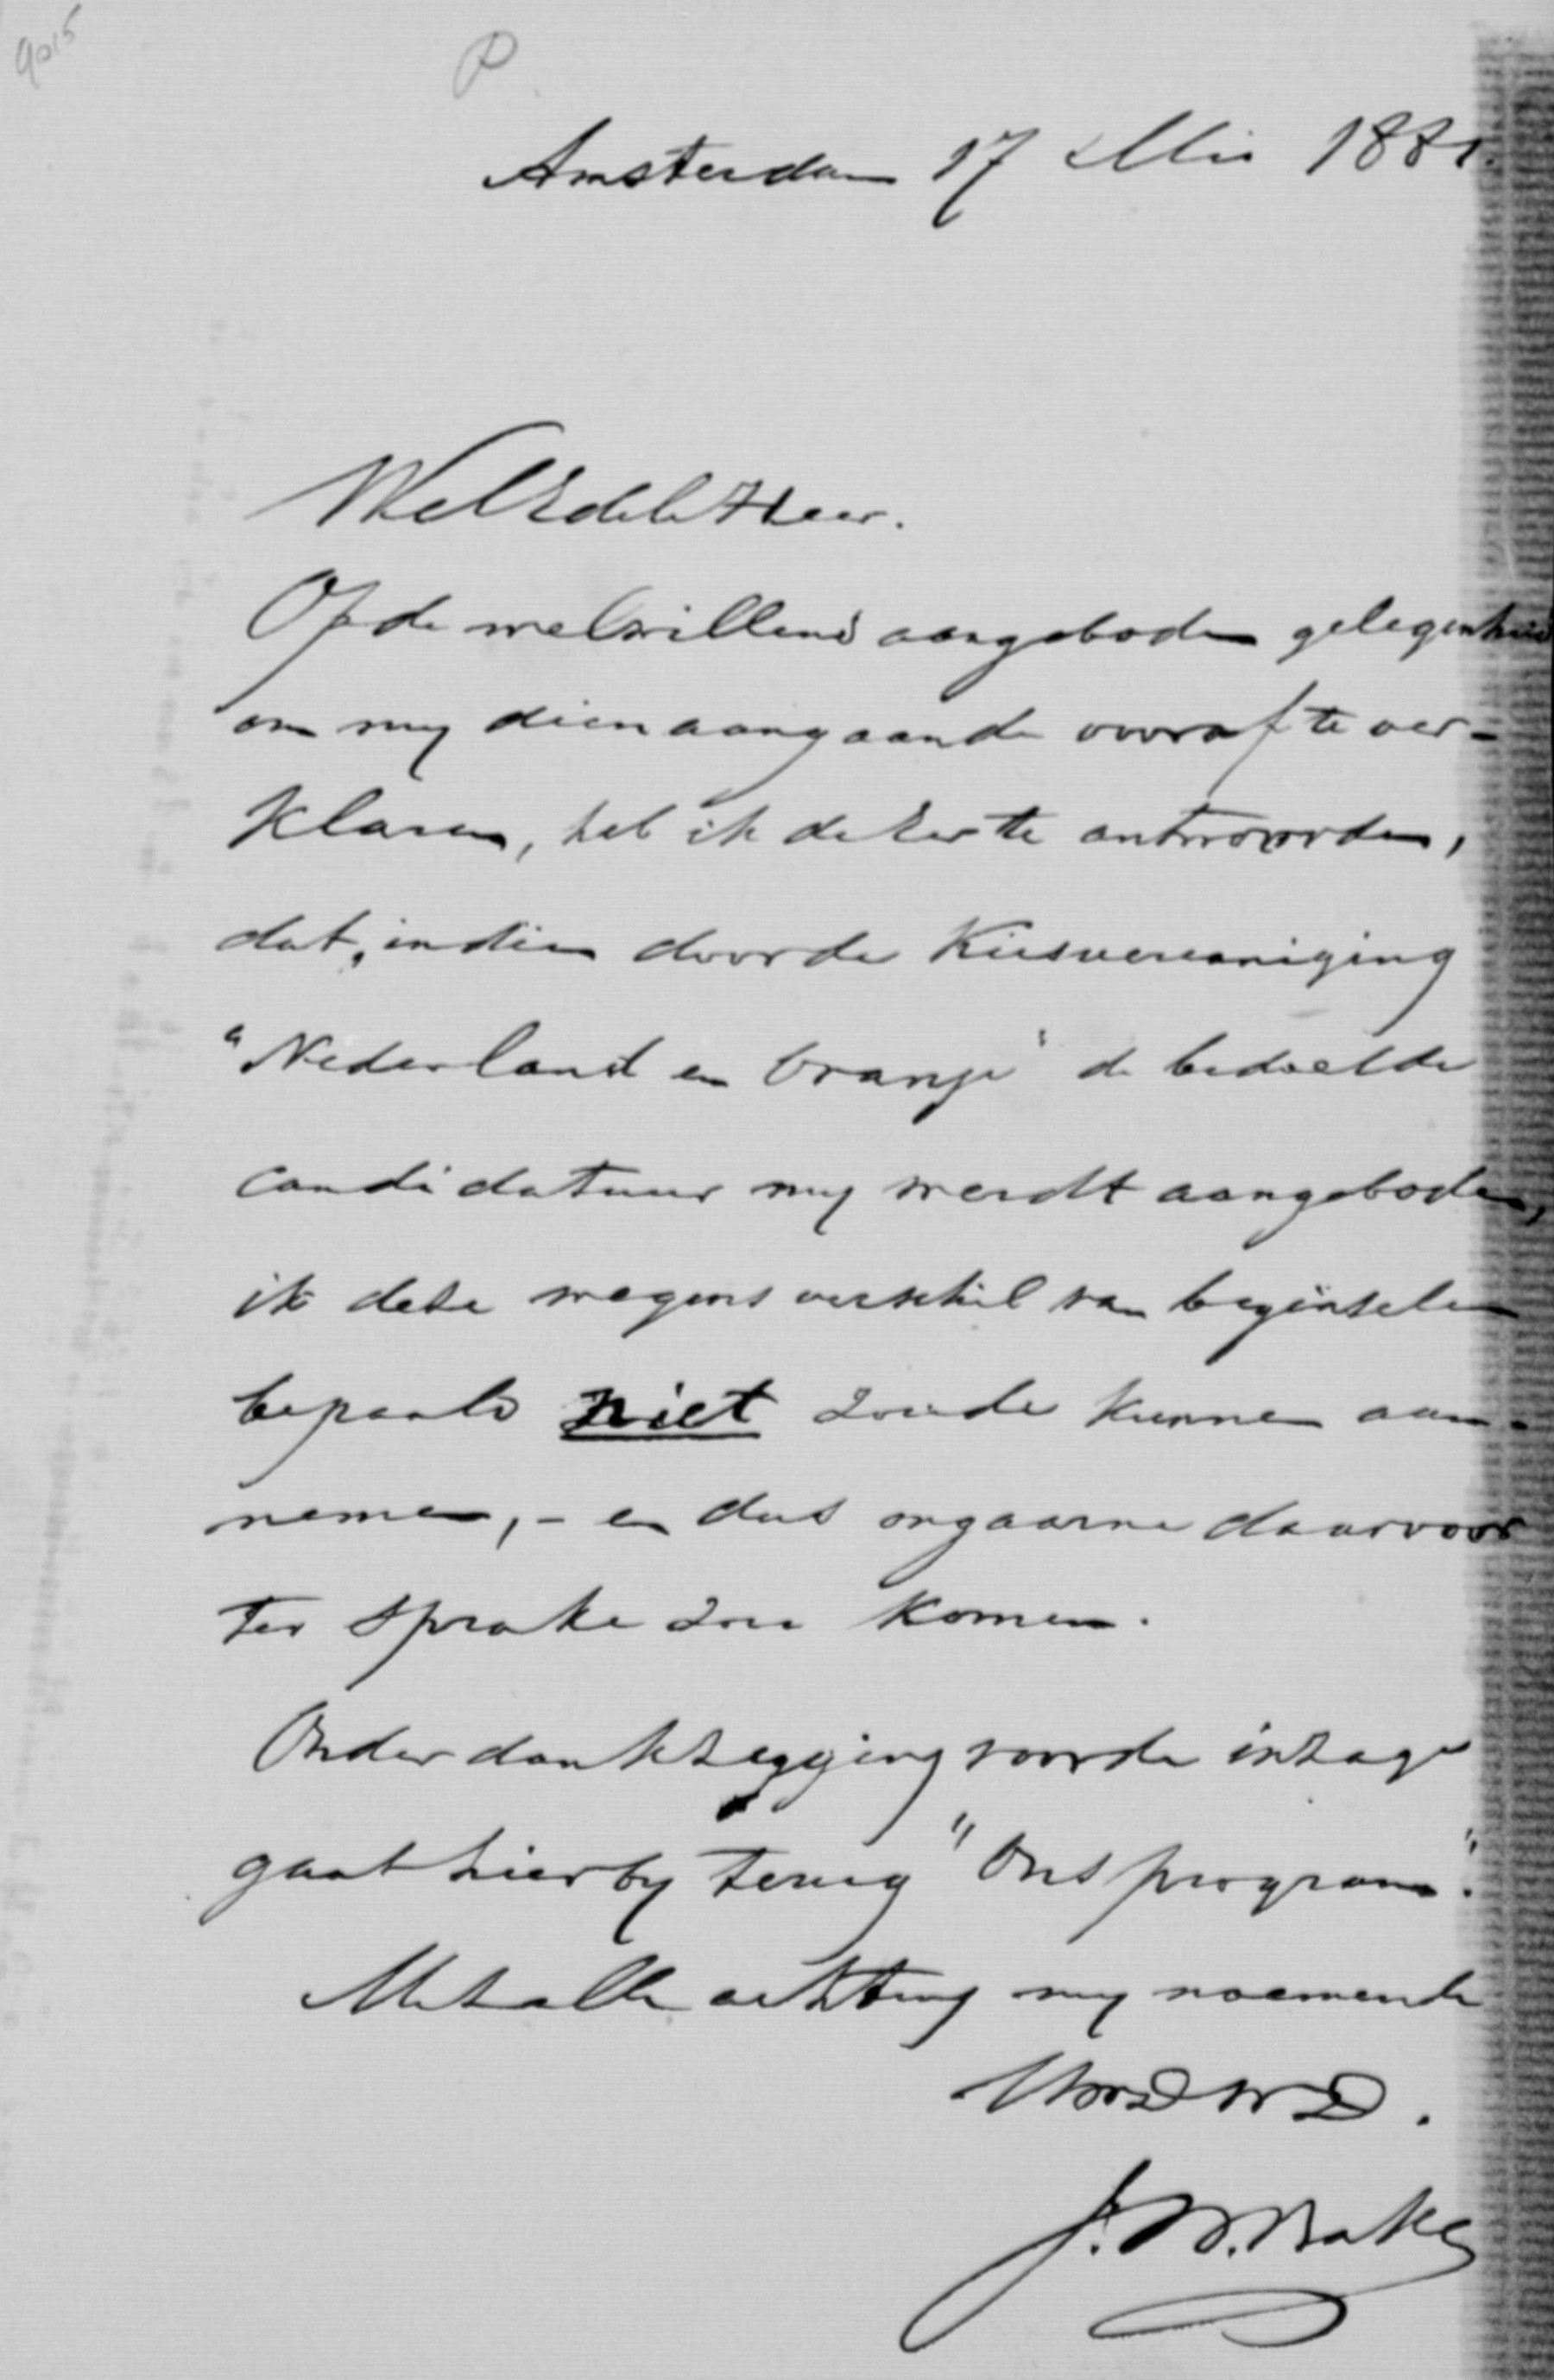 9015
P
Amsterdam 17 Mei 1881.
WelEdele Heer.
Op de welwillend aangeboden gelegenheid
om my dienaangaande vooraf te ver-
klaren, heb ik de Eer te antwoorden,
dat, indien door de Kiesvereeniging
"Nederland en Oranje" de bedoelde
candidatuur my werdt aangeboden,
ik deze wegens verschil van beginselen
bepaald niet zoude kunnen aan-
nemen, - en dus ongaarne daarvoor
ter sprake zou komen.
Onder dankzegging voor de inzage
gaat hierby terug "Ons program".
Met alle achting my noemende
UwEDWD.
J. W. Bake